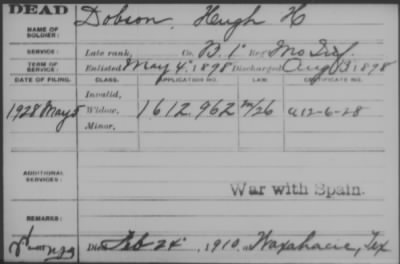 DEAD
NAME OF SOLDIER: Dobson, Hugh H
SERVICE: Late rank, Co. B. 1" Reg't Mo Inf.
TERM OF SERVICE: Enlisted May 4", 1898 Discharged Aug 1898
DATE OF FILING. CLASS. APPLICATION NO. LAW. CERTIFICATE NO.
Invalid,
1928 May 5 Widow, 1.612.962 A12-6-28
Minor,
ADDITIONAL SERVICES:
War with Spain.
REMARKS:
Died Feb 24", 1910, at Waxahacie, Tex